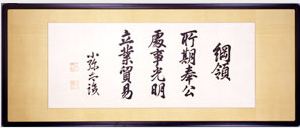 綱領
所期奉公
處事光明
立業貿易
小彌太議